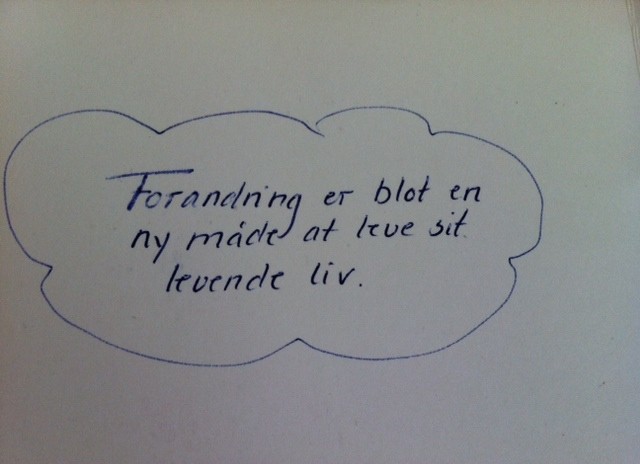 Forandring er blot en
ny måde at leve sit
levende liv.